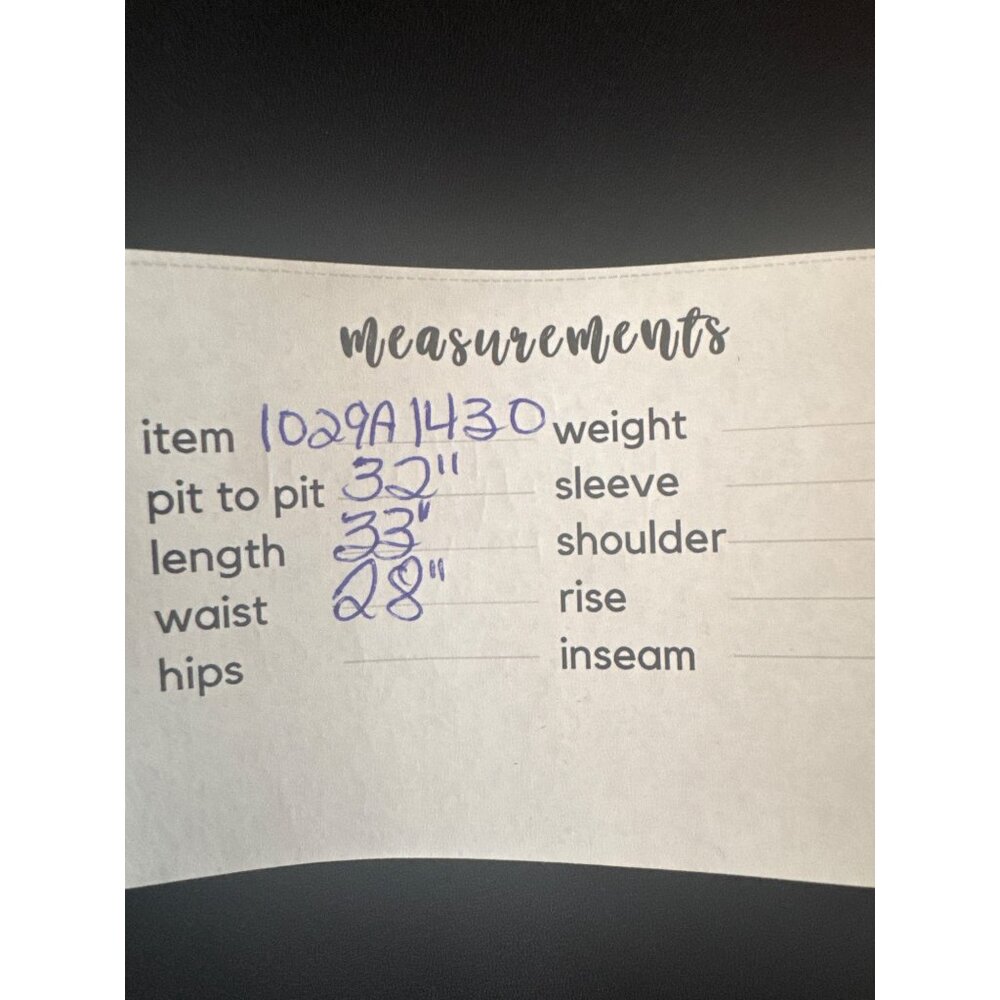 measurements
item 1029A1430 weight
pit to pit 32" sleeve
length 33" shoulder
waist 28" rise
hips inseam